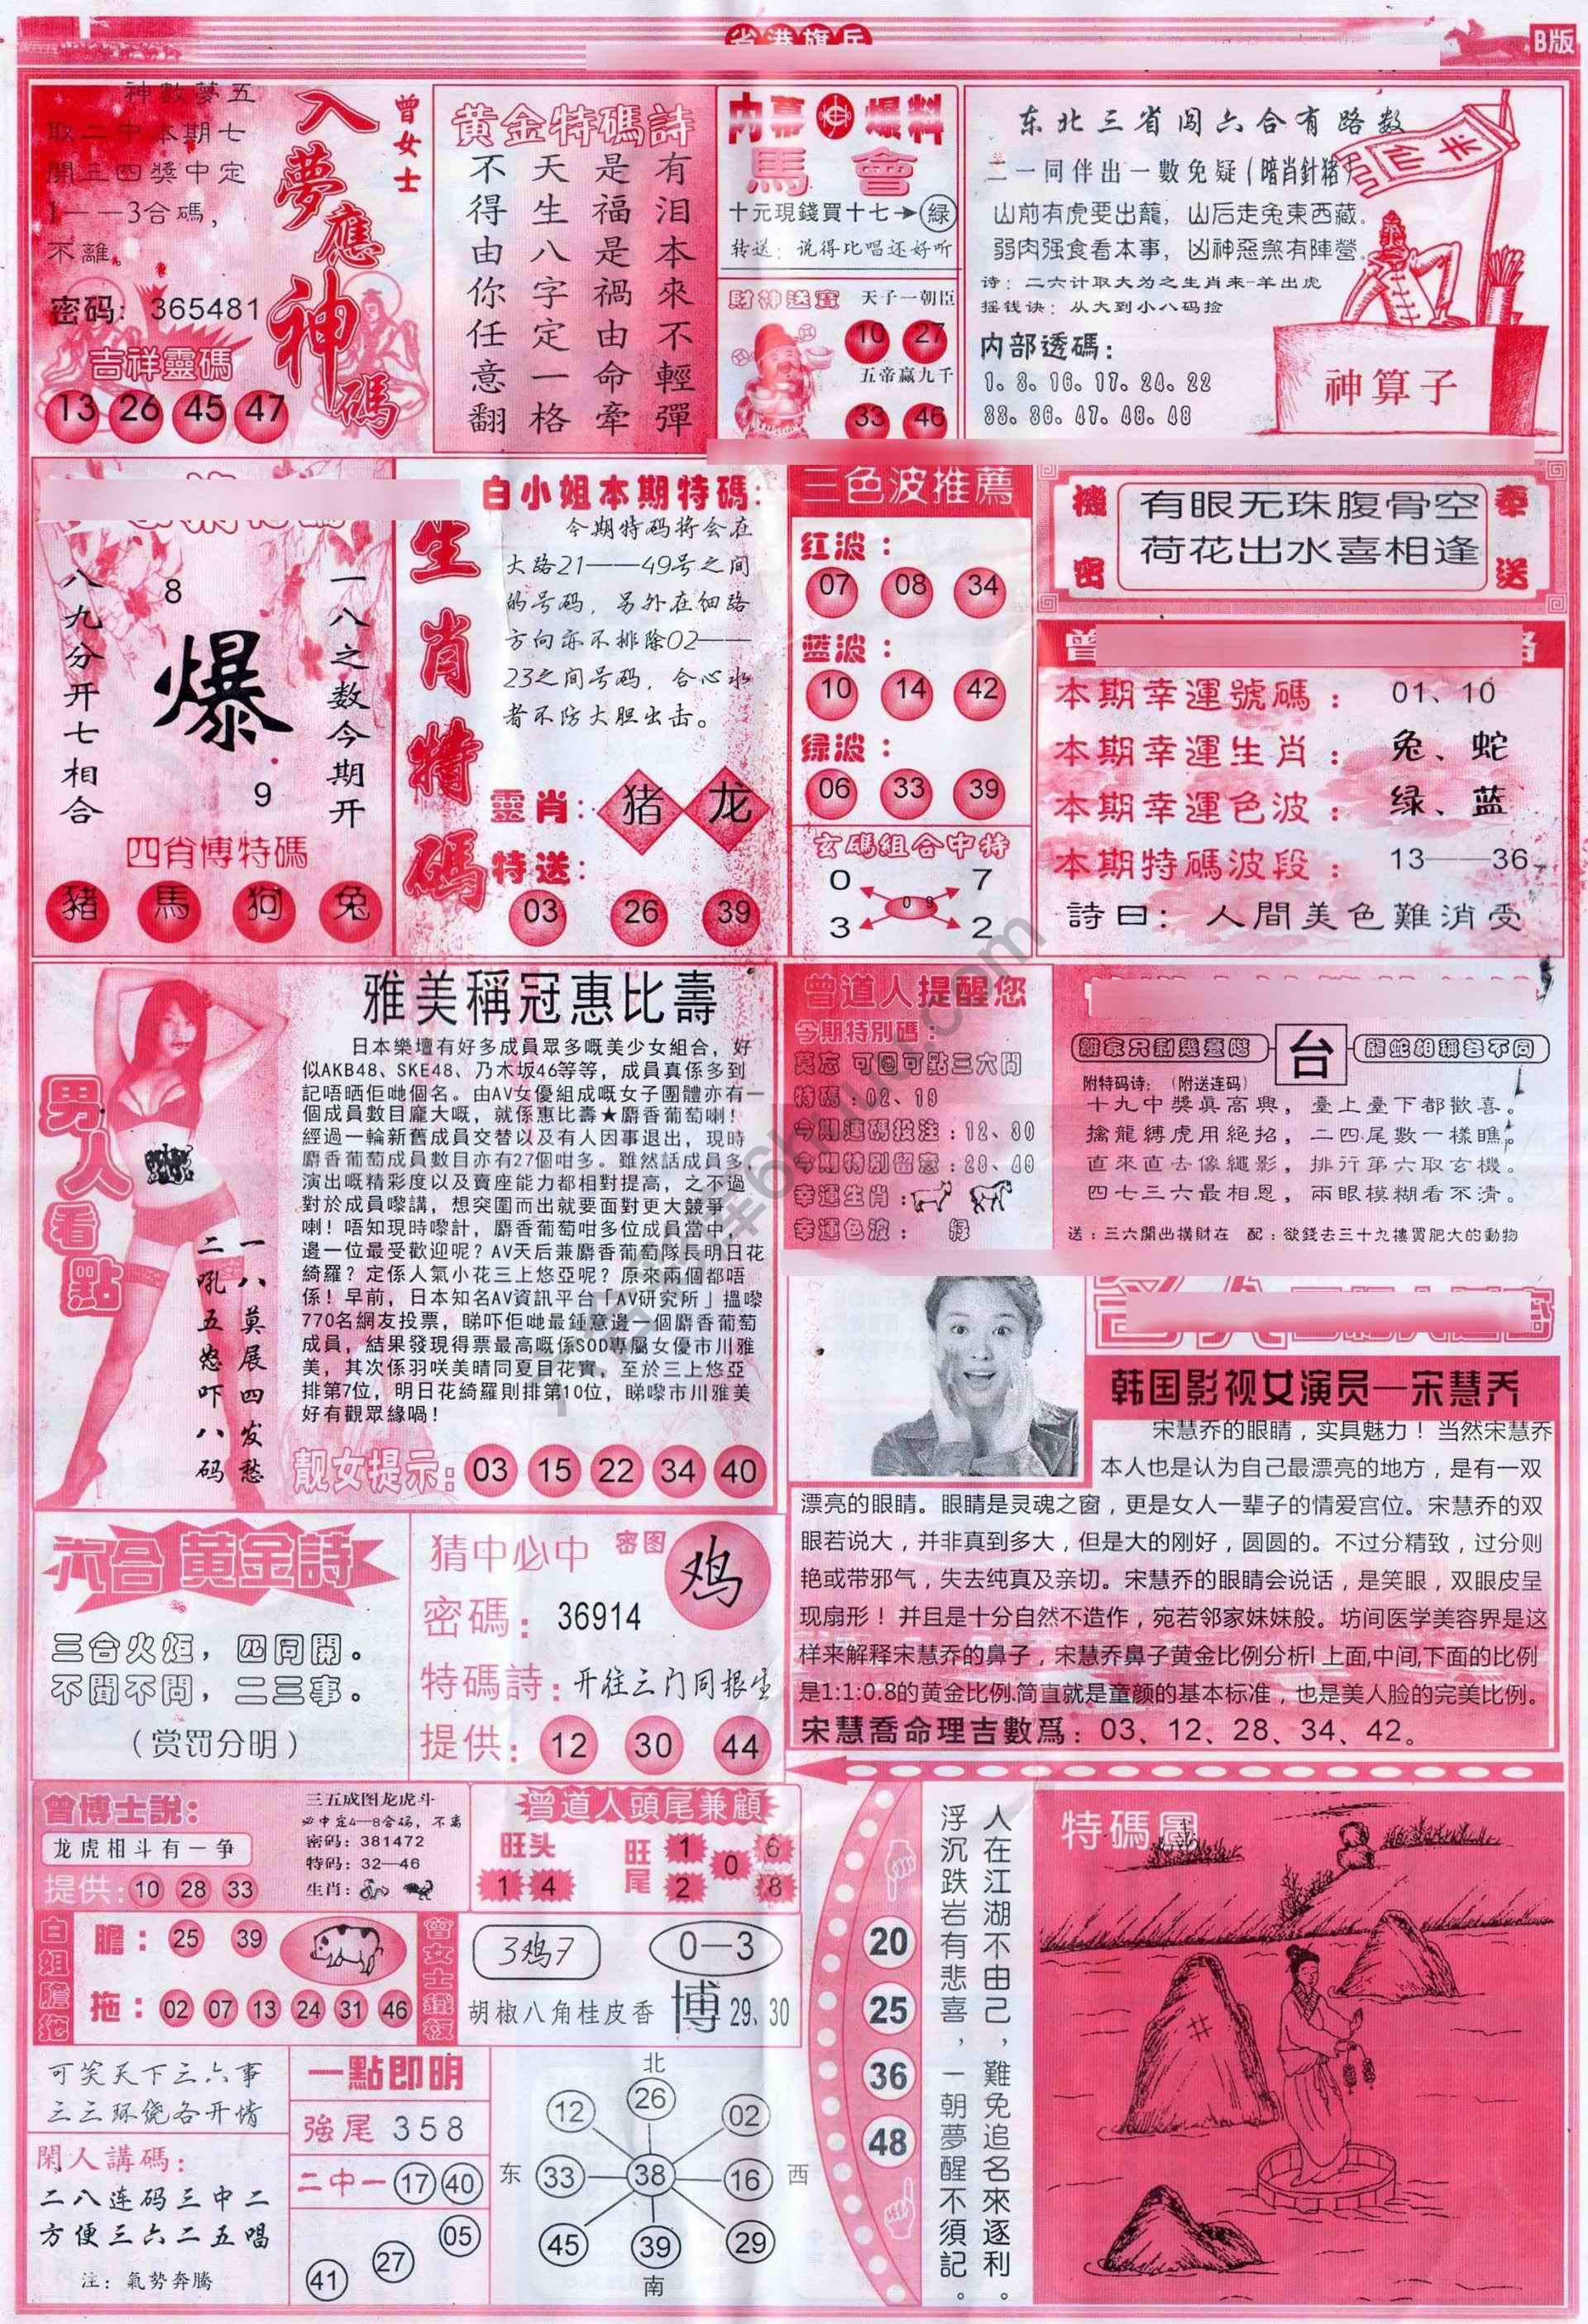 省港旗兵
B版
神數夢五
取二中本期七
開三四獎中定
1——3合碼，
不離。
密码：365481
吉祥靈碼
13 26 45 47
曾女士
入夢應神碼
黃金特碼詩
有泪本來不輕彈
是福是禍由命牽
天生八字定一格
不得由你任意翻
内幕 爆料
馬會
十元現錢買十七→緑
转送：说得比唱还好听
財神送寶
天子一朝臣
10 27
五帝赢九千
33 46
东北三省闯六合有路数
二一同伴出一數免疑（暗肖針猪）
山前有虎要出籠，山后走兔東西藏。
弱肉强食看本事，凶神惡煞有陣營。
诗：二六计取大为之生肖来-羊出虎
摇钱诀：从大到小八码捡
内部透碼：
1。3。16。17。20。22
33。36。47。48。48
半仙
神算子
一八之数今期开
八九分开七相合
8
爆
9
四肖博特碼
豬 馬 狗 兔
生肖特碼
白小姐本期特碼：
今期特码将会在
大路21——49号之间
的号码，另外在细路
方向亦不排除02——
23之间号码，合心水
者不防大胆出击。
靈肖：猪 龙
特送：
03 26 39
三色波推薦
红波：
07 08 34
蓝波：
10 14 42
绿波：
06 33 39
玄碼組合中特
0 7
0 9
3 2
機密
有眼无珠腹骨空
荷花出水喜相逢
奉送
本期幸運號碼：01、10
本期幸運生肖：兔、蛇
本期幸運色波：绿、蓝
本期特碼波段：13——36
詩曰：人間美色難消受
男人看點
一八莫展四发愁
二吼五怒吓八码
雅美稱冠惠比壽
日本樂壇有好多成員眾多嘅美少女組合，好
似AKB48、SKE48、乃木坂46等等，成員真係多到
記唔晒佢哋個名。由AV女優組成嘅女子團體亦有一
個成員數目龐大嘅，就係惠比壽★麝香葡萄喇！
經過一輪新舊成員交替以及有人因事退出，現時
麝香葡萄成員數目亦有27個咁多。雖然話成員多，
演出嘅精彩度以及賣座能力都相對提高，之不過
對於成員嚟講，想突圍而出就要面對更大競爭
喇！唔知現時嚟計，麝香葡萄咁多位成員當中，
邊一位最受歡迎呢？AV天后兼麝香葡萄隊長明日花
綺羅？定係人氣小花三上悠亞呢？原來兩個都唔
係！早前，日本知名AV資訊平台「AV研究所」搵嚟
770名網友投票，睇吓佢哋最鍾意邊一個麝香葡萄
成員，結果發現得票最高嘅係SOD專屬女優市川雅
美，其次係羽咲美晴同夏目花實，至於三上悠亞
排第7位，明日花綺羅則排第10位，睇嚟市川雅美
好有觀眾緣喎！
靓女提示：03 15 22 34 40
曾道人提醒您
今期特别碼：
莫忘 可圈可點三六問
特碼：02、19
今期連碼投注：12、30
今期特别留意：28、40
幸運生肖：
幸運色波： 绿
離家只剩幾臺階 台 龍蛇相稱各不同
附特码诗：（附送连码）
十九中獎真高興，臺上臺下都歡喜。
擒龍縛虎用絕招，二四尾數一樣瞧。
直來直去像繩影，排行第六取玄機。
四七三六最相恩，兩眼模糊看不清。
送：三六開出横財在 配：欲錢去三十九樓買肥大的動物
韩国影视女演员—宋慧乔
宋慧乔的眼睛，实具魅力！当然宋慧乔
本人也是认为自己最漂亮的地方，是有一双
漂亮的眼睛。眼睛是灵魂之窗，更是女人一辈子的情爱宫位。宋慧乔的双
眼若说大，并非真到多大，但是大的刚好，圆圆的。不过分精致，过分则
艳或带邪气，失去纯真及亲切。宋慧乔的眼睛会说话，是笑眼，双眼皮呈
现扇形！并且是十分自然不造作，宛若邻家妹妹般。坊间医学美容界是这
样来解释宋慧乔的鼻子，宋慧乔鼻子黄金比例分析! 上面,中间,下面的比例
是1:1:0.8的黄金比例.简直就是童颜的基本标准，也是美人脸的完美比例。
宋慧喬命理吉數爲：03、12、28、34、42。
六合黄金詩
三合火炬，四同開。
不聞不問，二三事。
（赏罚分明）
猜中必中 密图 鸡
密碼：36914
特碼詩：开往三门同根生
提供：12 30 44
曾博士說：
龙虎相斗有一争
提供：10 28 33
三五成图龙虎斗
必中定4—8合码，不离
密码：381472
特码：32—46
生肖：
曾道人頭尾兼顧
旺头 1 4
旺尾 1 2 0 6 8
白姐膽坨
膽：25 39
拖：02 07 13 24 31 46
曾女士鐵板
3鸡7
0—3
胡椒八角桂皮香 博 29、30
可笑天下三六事
三三环绕各开情
閑人講碼：
二八连码三中二
方便三六二五唱
注：氣勢奔騰
一點即明
強尾 358
二中一 17 40
41 27 05
北
12 26 02
东 33 38 16 西
45 39 29
南
20
25
36
48
人在江湖不由己，難免追名來逐利。
浮沉跌岩有悲喜，一朝夢醒不須記。
特碼圖
井